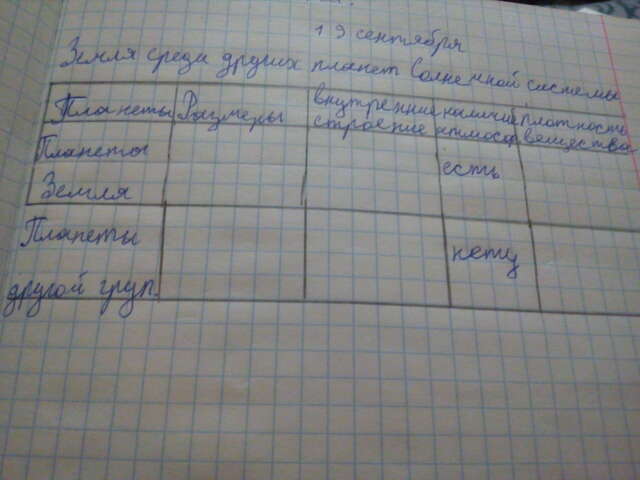 19 сентября
Земля среди других планет солнечной системы
Планеты Размеры внутренние строение наличие атмосфер плотность вещества
Планеты
Земля
есть
Планеты
другой груп.
нету